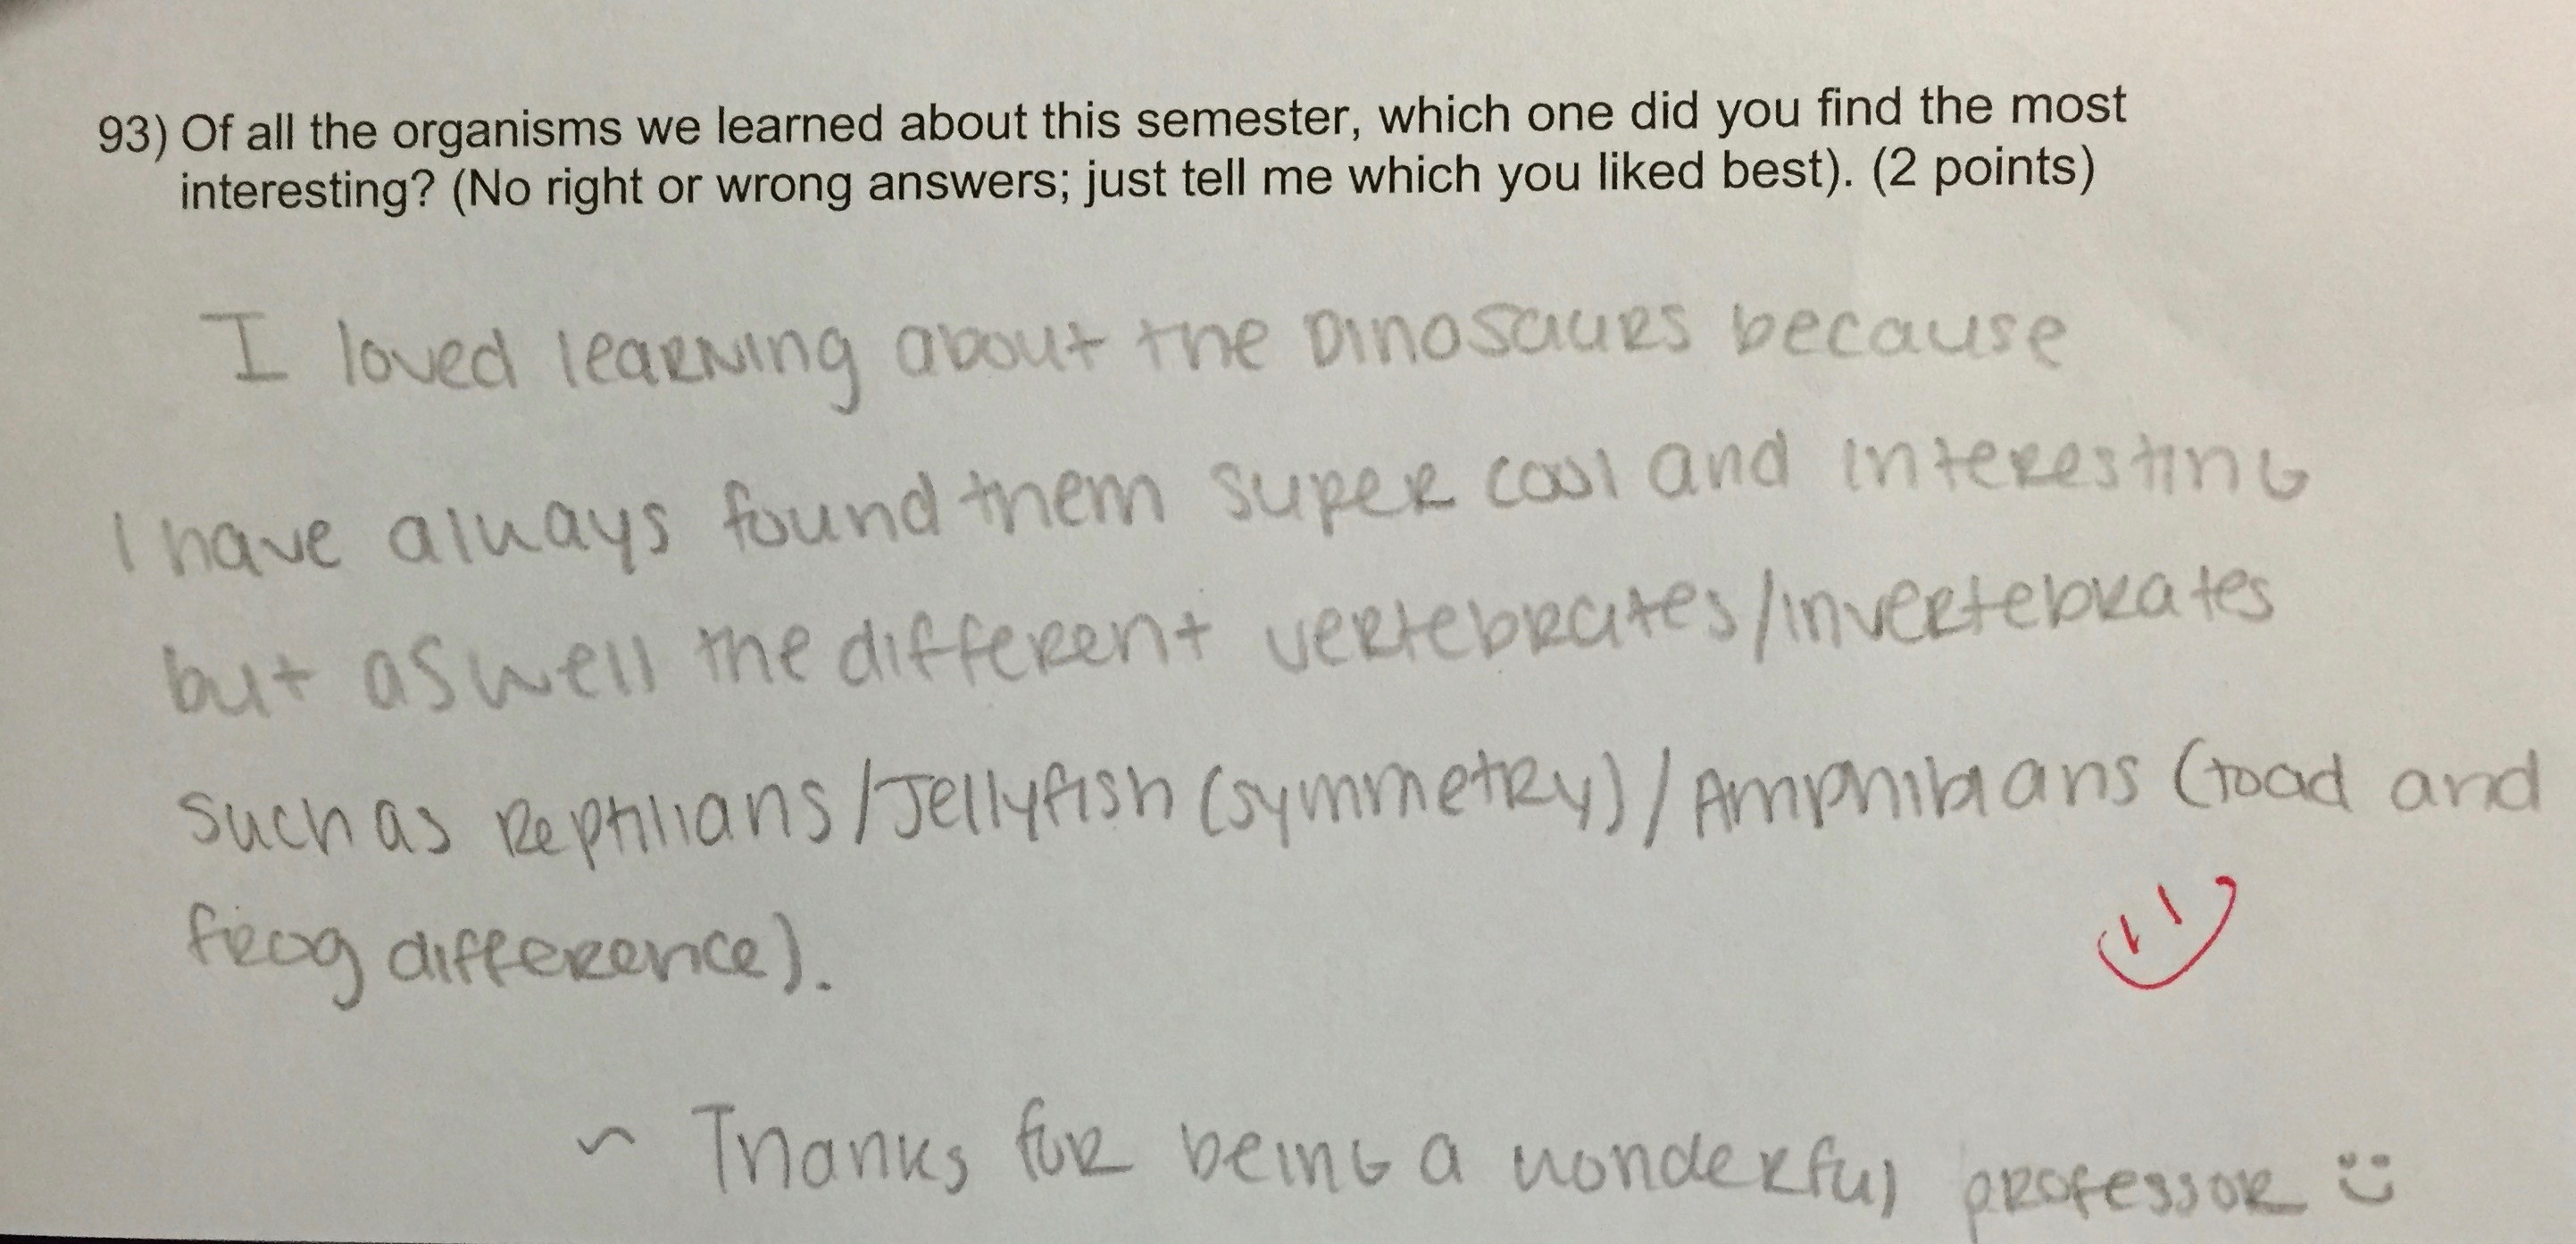 93) Of all the organisms we learned about this semester, which one did you find the most
interesting? (No right or wrong answers; just tell me which you liked best). (2 points)
I loved learning about the Dinosaurs because
I have always found them super cool and interesting
but aswell the different vertebrates/invertebrates
such as Reptilians/Jellyfish (symmetry)/Amphibians (toad and
frog difference).
~ Thanks for being a wonderful professor :)